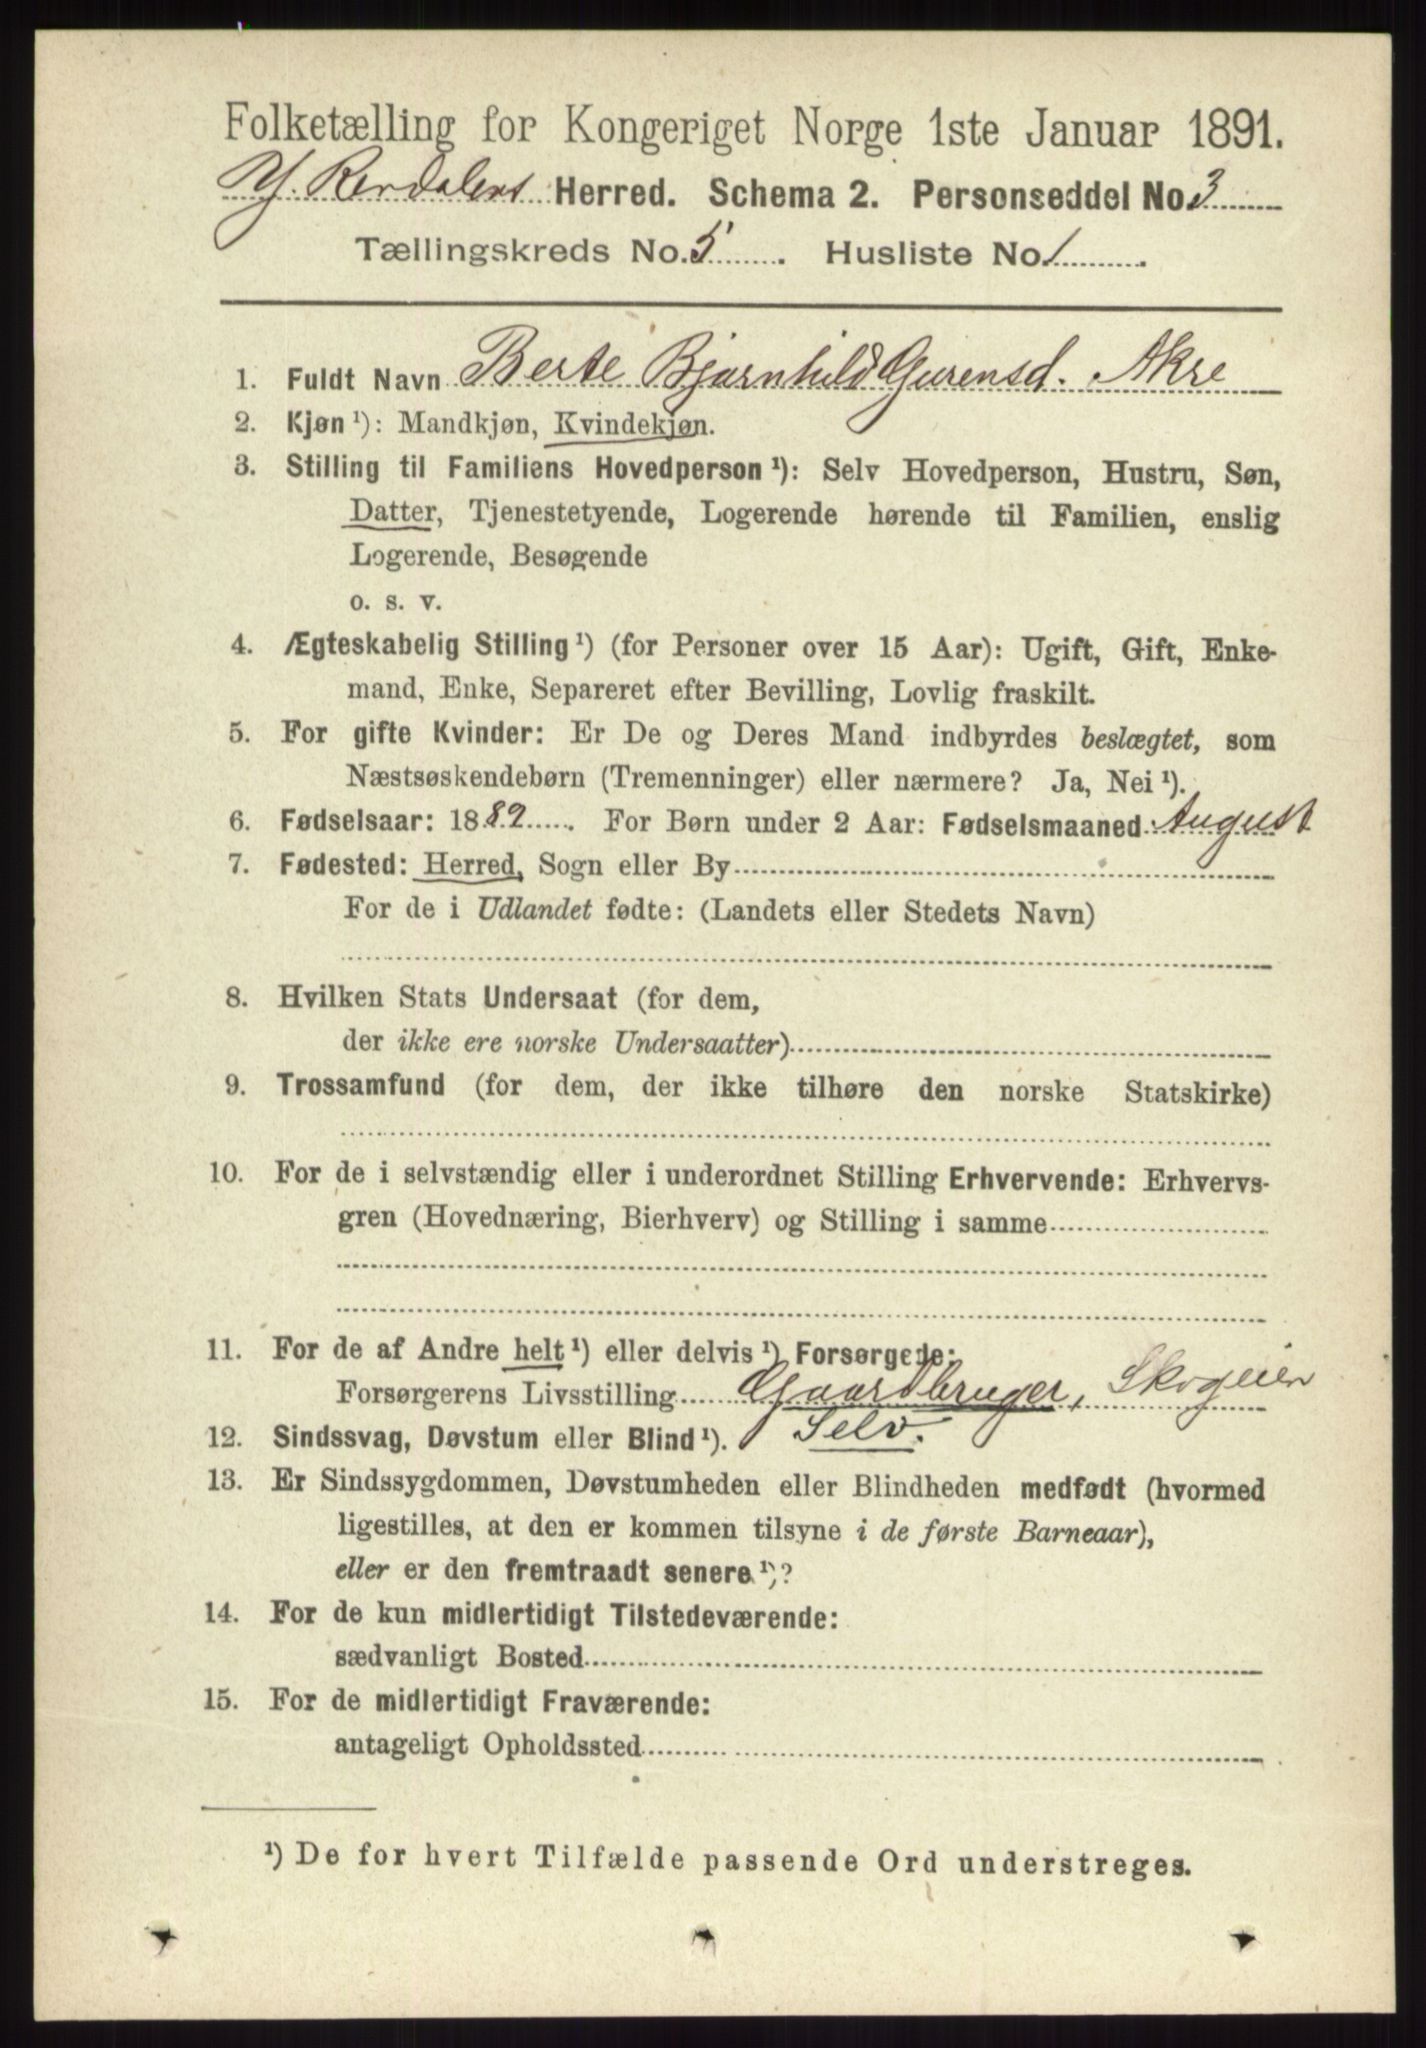 Folketælling for Kongeriget Norge 1ste Januar 1891.
Y. Rendalens Herred. Schema 2. Personseddel No. 3
Tællingskreds No. 5. Husliste No. 1.
1. Fuldt Navn Berte Bjørnhild Gurensd. Akre
2. Kjøn ¹): Mandkjøn, Kvindekjøn.
3. Stilling til Familiens Hovedperson ¹): Selv Hovedperson, Hustru, Søn,
Datter, Tjenestetyende, Logerende hørende til Familien, enslig
Logerende, Besøgende
o. s. v.
4. Ægteskabelig Stilling ¹) (for Personer over 15 Aar): Ugift, Gift, Enke-
mand, Enke, Separeret efter Bevilling, Lovlig fraskilt.
5. For gifte Kvinder: Er De og Deres Mand indbyrdes beslægtet, som
Næstsøskendebørn (Tremenninger) eller nærmere? Ja, Nei ¹).
6. Fødselsaar: 1889. For Børn under 2 Aar: Fødselsmaaned August
7. Fødested: Herred, Sogn eller By
For de i Udlandet fødte: (Landets eller Stedets Navn)
8. Hvilken Stats Undersaat (for dem,
der ikke ere norske Undersaatter)
9. Trossamfund (for dem, der ikke tilhøre den norske Statskirke)
10. For de i selvstændig eller i underordnet Stilling Erhvervende: Erhvervs-
gren (Hovednæring, Bierhverv) og Stilling i samme
11. For de af Andre helt ¹) eller delvis ¹) Forsørgede:
Forsørgerens Livsstilling Gaardbruger, Skogeier
12. Sindssvag, Døvstum eller Blind ¹). Selv.
13. Er Sindssygdommen, Døvstumheden eller Blindheden medfødt (hvormed
ligestilles, at den er kommen tilsyne i de første Barneaar),
eller er den fremtraadt senere ¹)?
14. For de kun midlertidigt Tilstedeværende:
sædvanligt Bosted
15. For de midlertidigt Fraværende:
antageligt Opholdssted
¹) De for hvert Tilfælde passende Ord understreges.